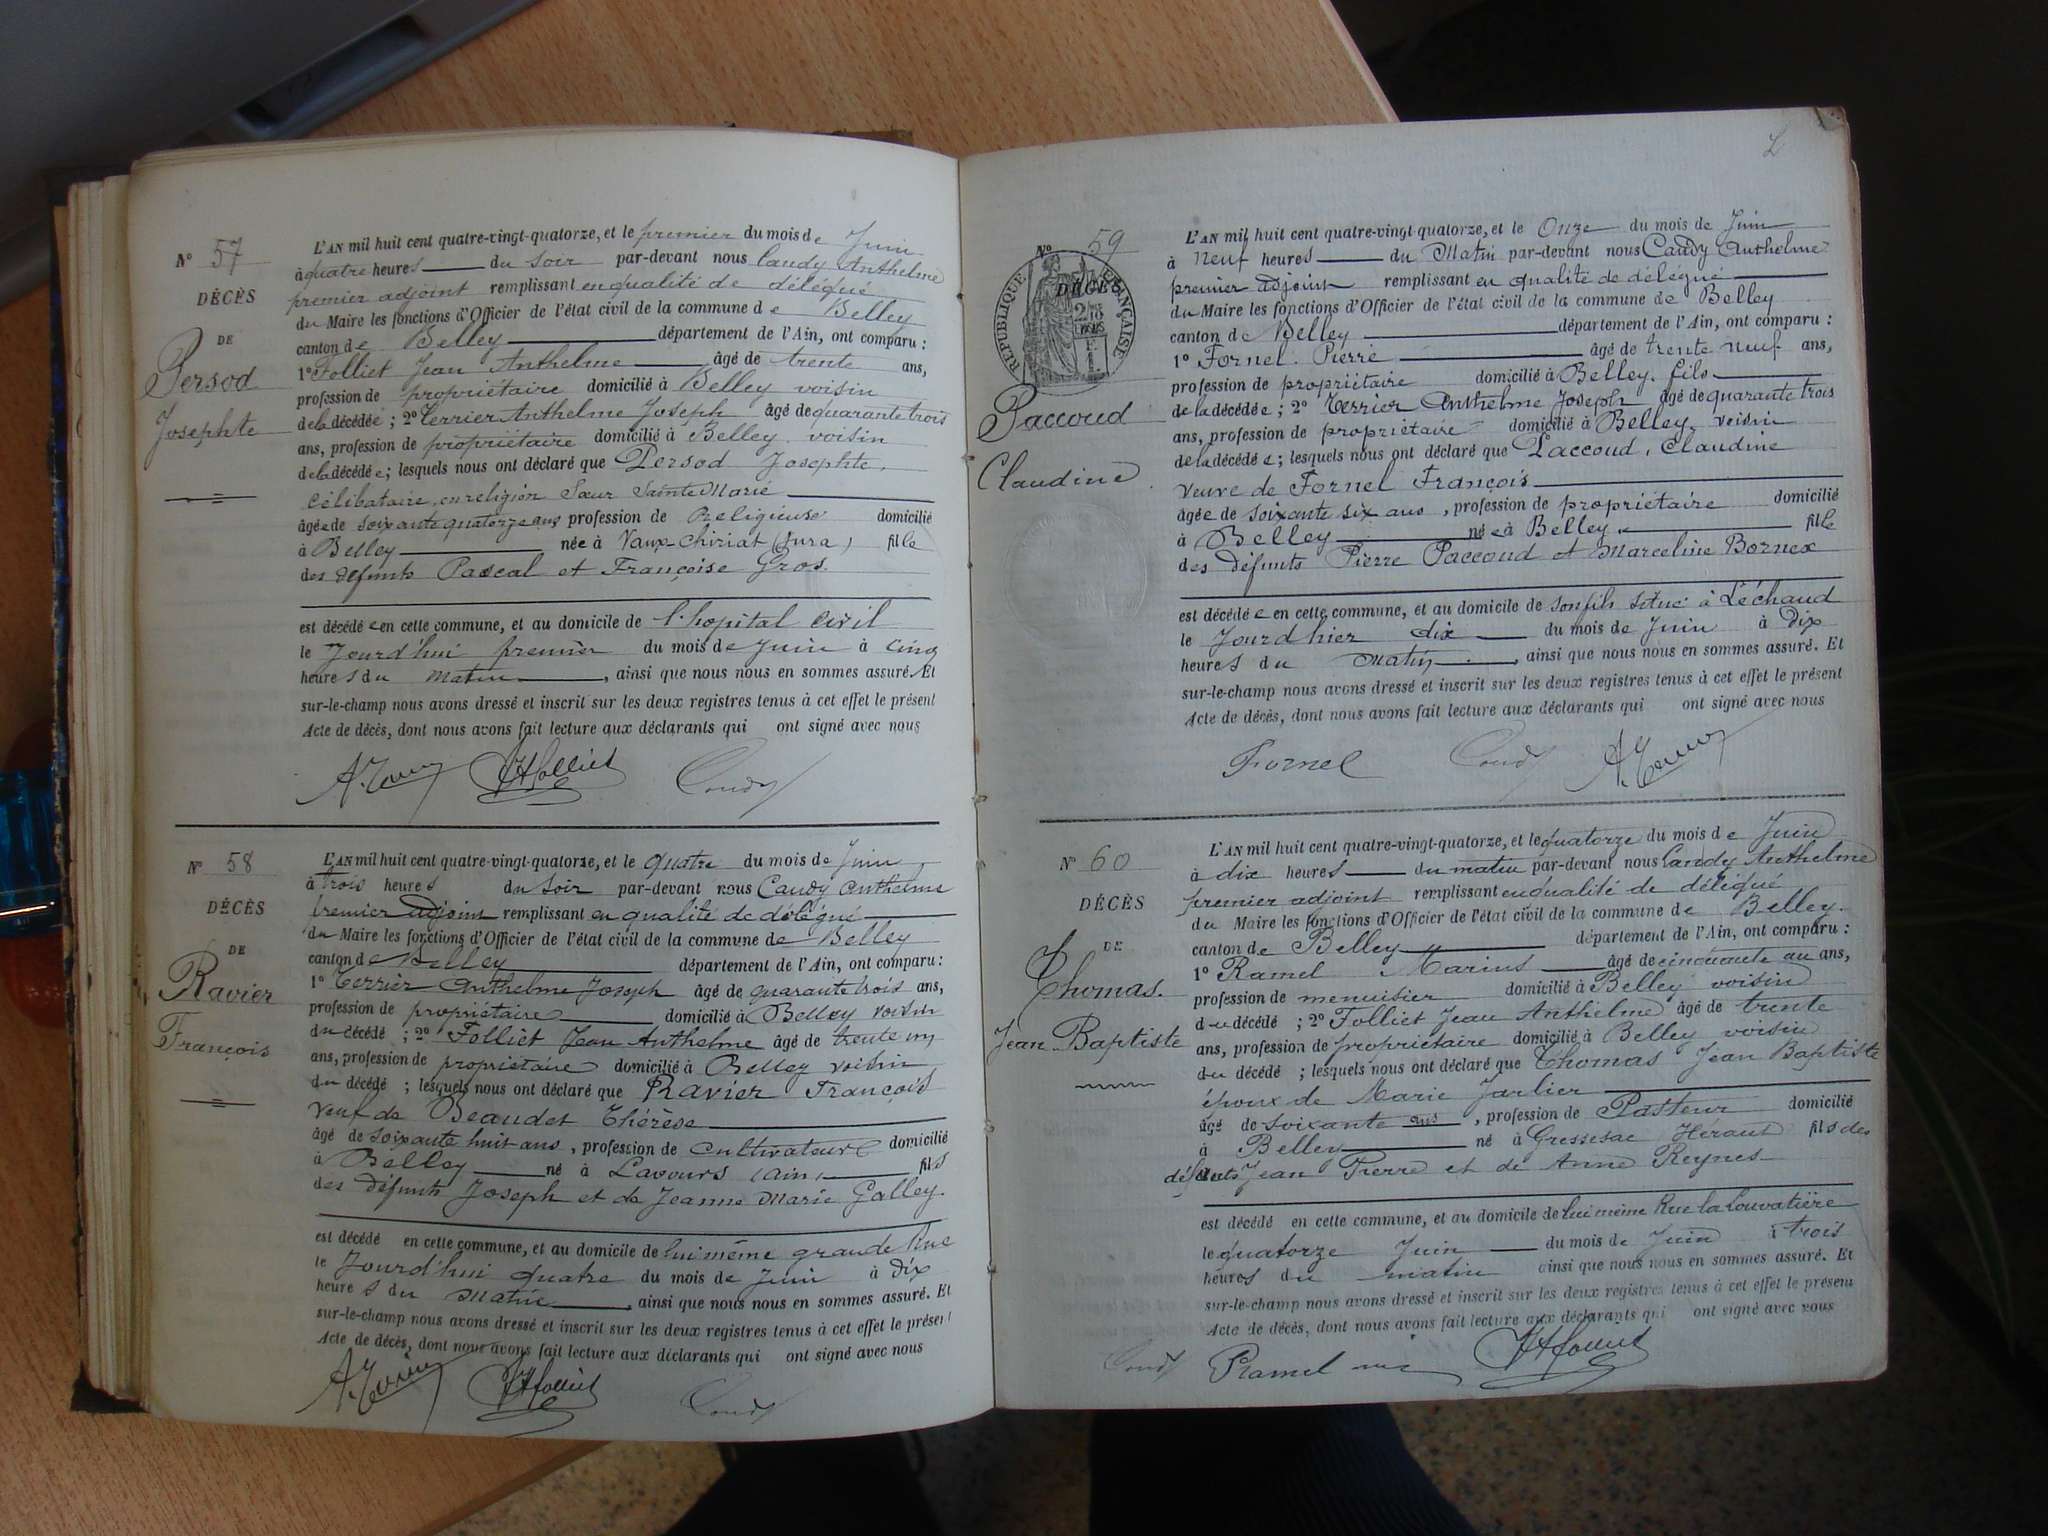 N° 57
DÉCÈS
DE
Persod
Josephte
L'AN mil huit cent quatre-vingt-quatorze, et le premier du mois de Juin
à quatre heures du soir par-devant nous Candy Anthelme
premier adjoint remplissant en qualité de délégué
du Maire les fonctions d'Officier de l'état civil de la commune de Belley
canton de Belley département de l'Ain, ont comparu :
1° Folliet Jean Anthelme âgé de trente ans,
profession de propriétaire domicilié à Belley voisin
de la décédée ; 2° Terrier Anthelme Joseph âgé de quarante trois
ans, profession de propriétaire domicilié à Belley voisin
de la décédée ; lesquels nous ont déclaré que Persod Josephte,
célibataire, en religion Sœur Sainte Marie
âgée de soixante quatorze ans profession de Religieuse domicilié
à Belley née à Vaux-Chiriat (Jura) fille
des défunts Pascal et Françoise Gros.
est décédée en cette commune, et au domicile de l'hopital civil
le Jourd'hui premier du mois de Juin à cinq
heures du matin, ainsi que nous nous en sommes assuré. Et
sur-le-champ nous avons dressé et inscrit sur les deux registres tenus à cet effet le présent
Acte de décès, dont nous avons fait lecture aux déclarants qui ont signé avec nous
A. Terrier JA Folliet Candy
N° 58
DÉCÈS
DE
Ravier
François
L'AN mil huit cent quatre-vingt-quatorze, et le quatre du mois de Juin
à trois heures du soir par-devant nous Candy Anthelme
premier adjoint remplissant en qualité de délégué
du Maire les fonctions d'Officier de l'état civil de la commune de Belley
canton de Belley département de l'Ain, ont comparu :
1° Terrier Anthelme Joseph âgé de quarante trois ans,
profession de propriétaire domicilié à Belley voisin
du décédé ; 2° Folliet Jean Anthelme âgé de trente un
ans, profession de propriétaire domicilié à Belley voisin
du décédé ; lesquels nous ont déclaré que Ravier François
veuf de Beaudet Thérèse
âgé de soixante huit ans, profession de cultivateur domicilié
à Belley né à Lavours (Ain) fils
des défunts Joseph et de Jeanne Marie Galley.
est décédé en cette commune, et au domicile de lui même grande Rue
le Jourd'hui quatre du mois de Juin à Dix
heures du Matin, ainsi que nous nous en sommes assuré. Et
sur-le-champ nous avons dressé et inscrit sur les deux registres tenus à cet effet le présent
Acte de décès, dont nous avons fait lecture aux déclarants qui ont signé avec nous
A. Terrier JA Folliet Candy
N° 59
DÉCÈS
RÉPUBLIQUE FRANÇAISE
Paccoud
Claudine
L'AN mil huit cent quatre-vingt-quatorze, et le Onze du mois de Juin
à Neuf heures du Matin par-devant nous Candy Anthelme
premier adjoint remplissant en qualité de délégué
du Maire les fonctions d'Officier de l'état civil de la commune de Belley
canton de Belley département de l'Ain, ont comparu :
1° Fornel Pierre âgé de trente neuf ans,
profession de propriétaire domicilié à Belley, fils
de la décédée ; 2° Terrier Anthelme Joseph âgé de quarante trois
ans, profession de propriétaire domicilié à Belley, voisin
de la décédée ; lesquels nous ont déclaré que Paccoud, Claudine
veuve de Fornel François
âgée de soixante six ans, profession de propriétaire domicilié
à Belley née à Belley fille
des défunts Pierre Paccoud et Marceline Bornex
est décédée en cette commune, et au domicile de son fils situé à Léchaud
le Jourd'hier dix du mois de Juin à Dix
heures du Matin, ainsi que nous nous en sommes assuré. Et
sur-le-champ nous avons dressé et inscrit sur les deux registres tenus à cet effet le présent
Acte de décès, dont nous avons fait lecture aux déclarants qui ont signé avec nous
Fornel Candy A. Terrier
N° 60
DÉCÈS
DE
Thomas.
Jean Baptiste
L'AN mil huit cent quatre-vingt-quatorze, et le quatorze du mois de Juin
à dix heures du matin par-devant nous Candy Anthelme
premier adjoint remplissant en qualité de délégué
du Maire les fonctions d'Officier de l'état civil de la commune de Belley.
canton de Belley département de l'Ain, ont comparu :
1° Ramel Marius âgé de cinquante un ans,
profession de menuisier domicilié à Belley voisin
du décédé ; 2° Folliet Jean Anthelme âgé de trente
ans, profession de propriétaire domicilié à Belley voisin
du décédé ; lesquels nous ont déclaré que Thomas Jean Baptiste
époux de Marie Jarlier
âgé de soixante ans, profession de Pasteur domicilié
à Belley né à Gressesac Héraut fils des
défunts Jean Pierre et de Anne Reynes
est décédé en cette commune, et au domicile de lui même Rue la Louvatière
le quatorze Juin du mois de Juin à trois
heures du matin ainsi que nous nous en sommes assuré. Et
sur-le-champ nous avons dressé et inscrit sur les deux registres tenus à cet effet le présent
Acte de décès, dont nous avons fait lecture aux déclarants qui ont signé avec nous
Candy Ramel JA Folliet